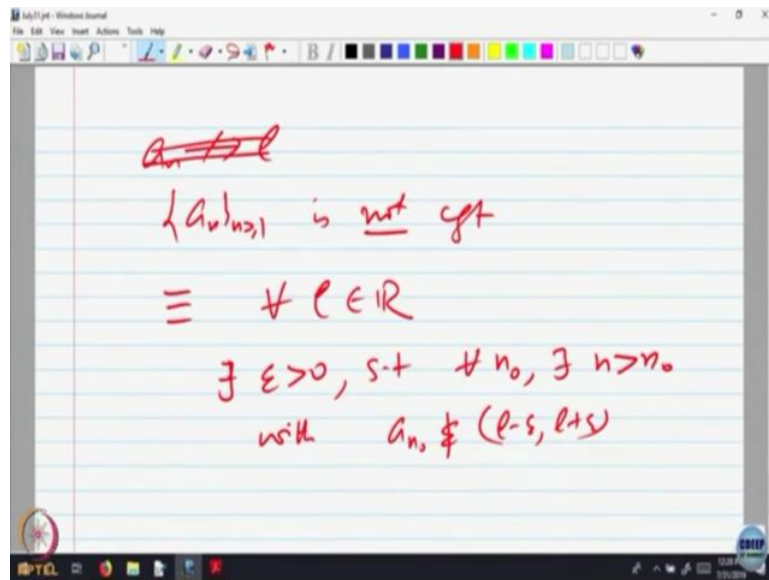 July31.jnt - Windows Journal
File Edit View Insert Actions Tools Help
B I
aₙ ↛ l
{aₙ}ₙ≥₁ is not cgt
≡ ∀ l ∈ ℝ
∃ ε>0, s.t ∀ n₀, ∃ n>n₀
with aₙ₀ ∉ (l-ε, l+ε)
NPTEL
CDEEP
7/31/2019